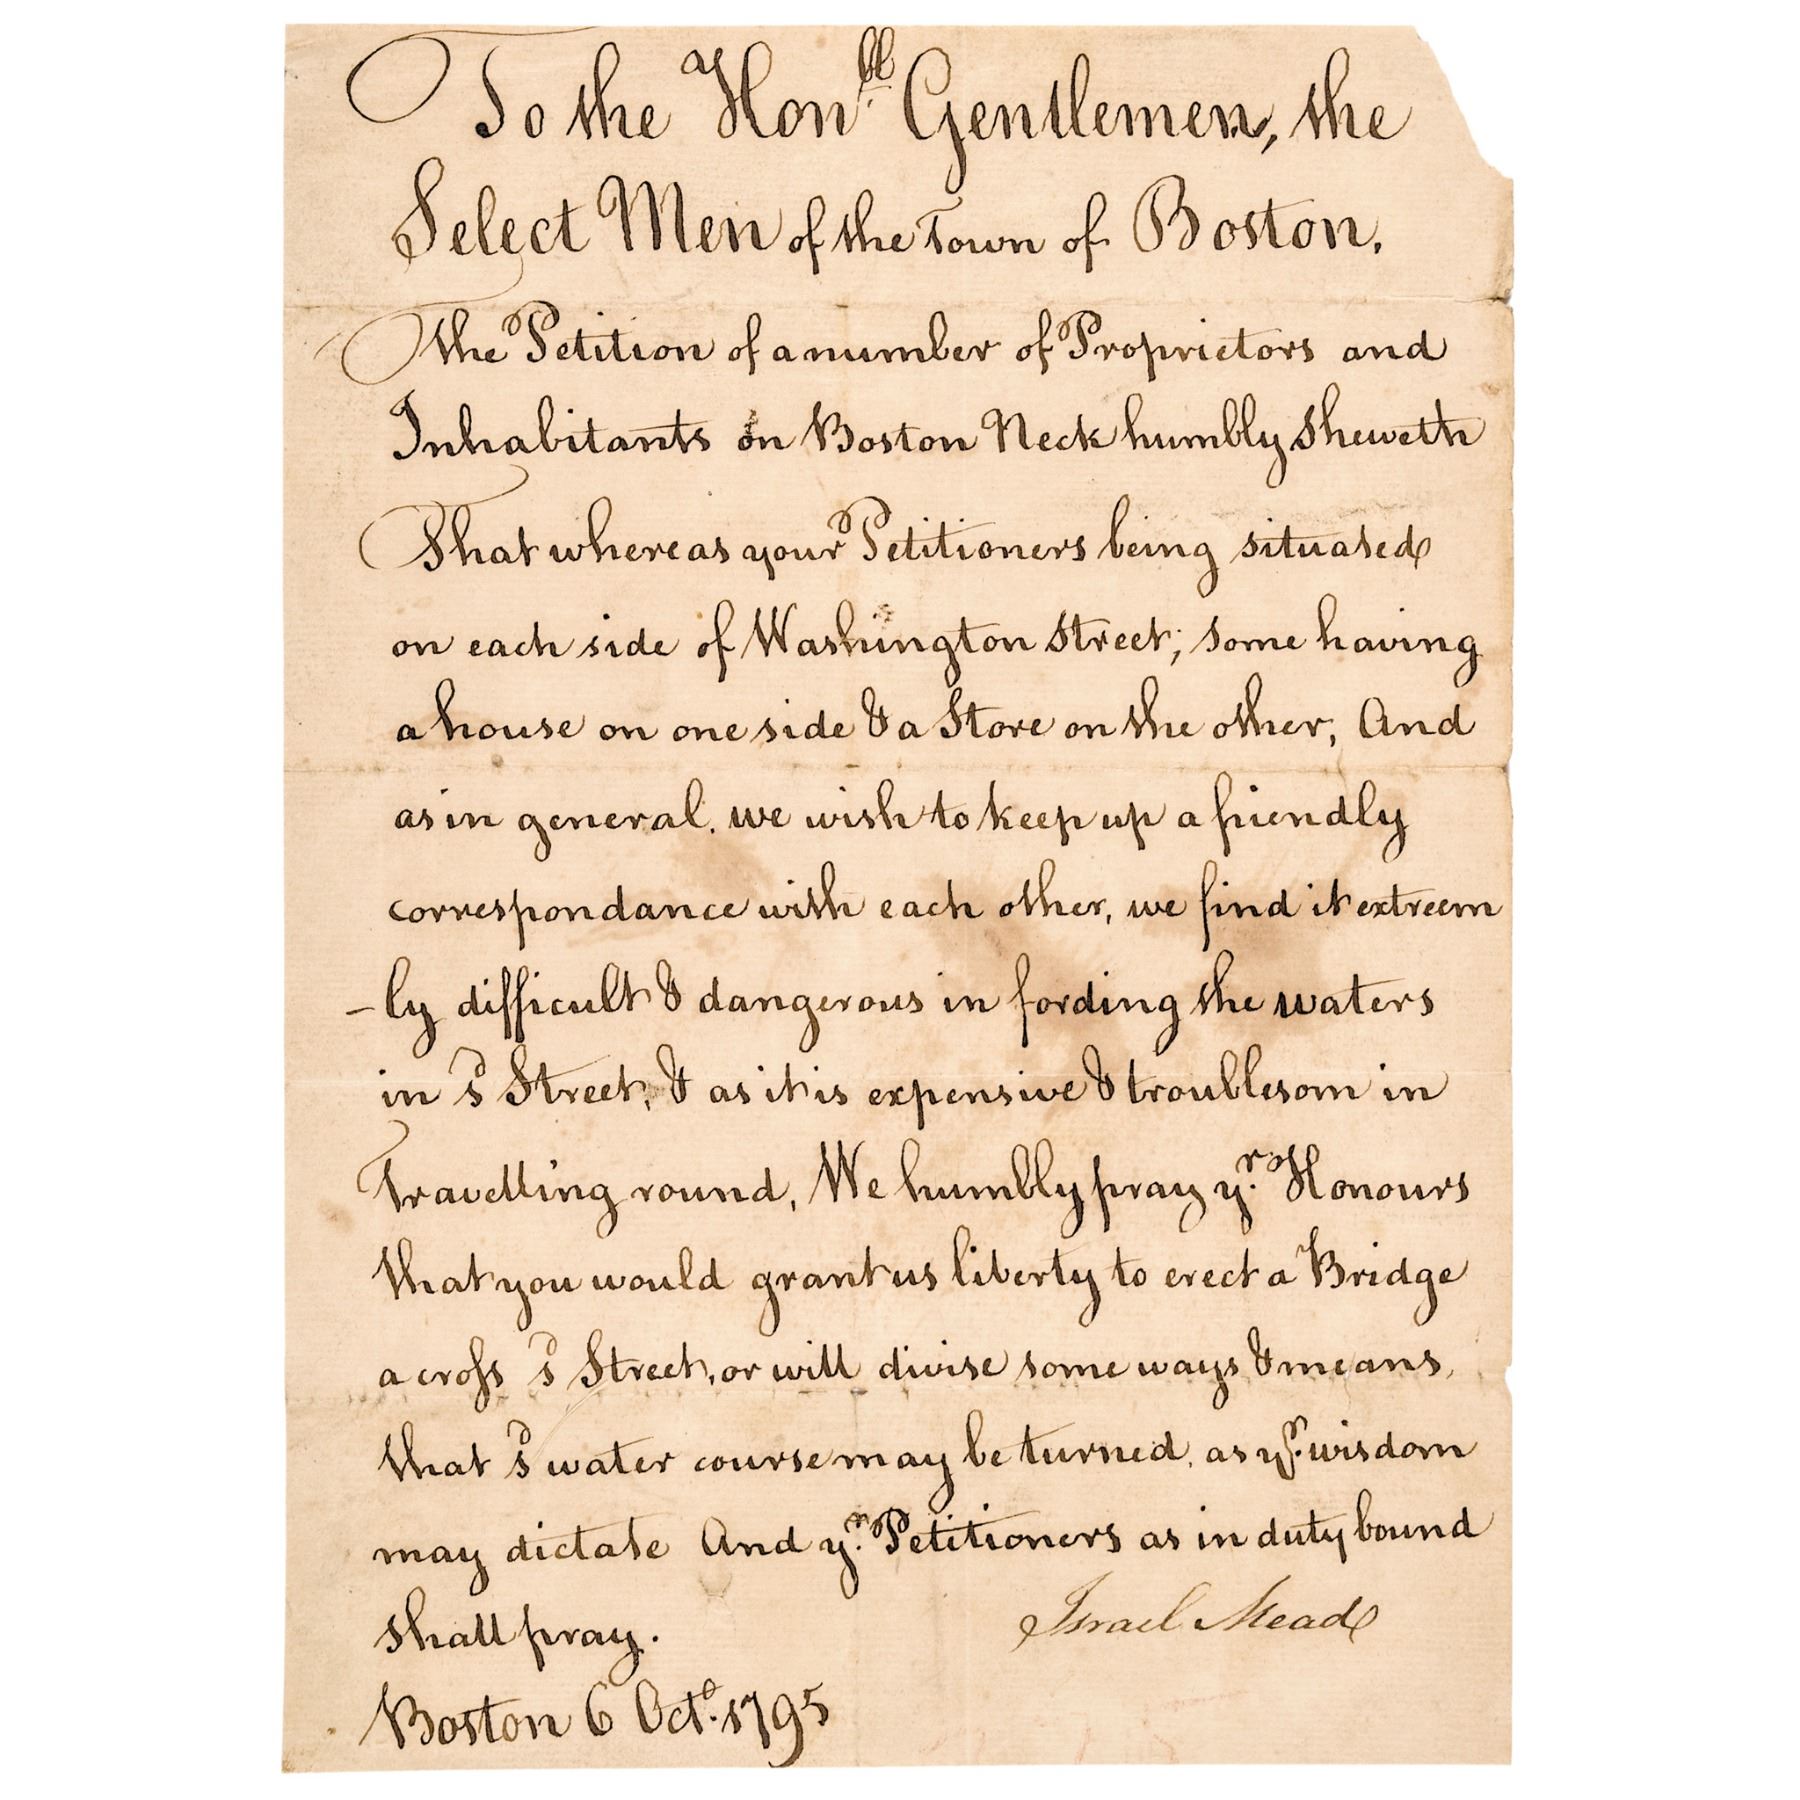 To the Hon^ble Gentlemen, the
Select Men of the Town of Boston.
The Petition of a number of Proprietors and
Inhabitants on Boston Neck humbly sheweth
That whereas your Petitioners being situated
on each side of Washington Street; some having
a house on one side & a Store on the other, And
as in general. we wish to keep up a friendly
correspondance with each other, we find it extreem
-ly difficult & dangerous in fording the waters
in s^d Street, & as it is expensive & troublesom in
Travelling round, We humbly pray y^r. Honours
that you would grant us liberty to erect a Bridge
across s^d Street, or will divise some ways & means,
that s^d water course may be turned, as y^r. wisdom
may dictate And y^r. Petitioners as in duty bound
shall pray.
Israel Mead
Boston 6 Oct^o. 1795